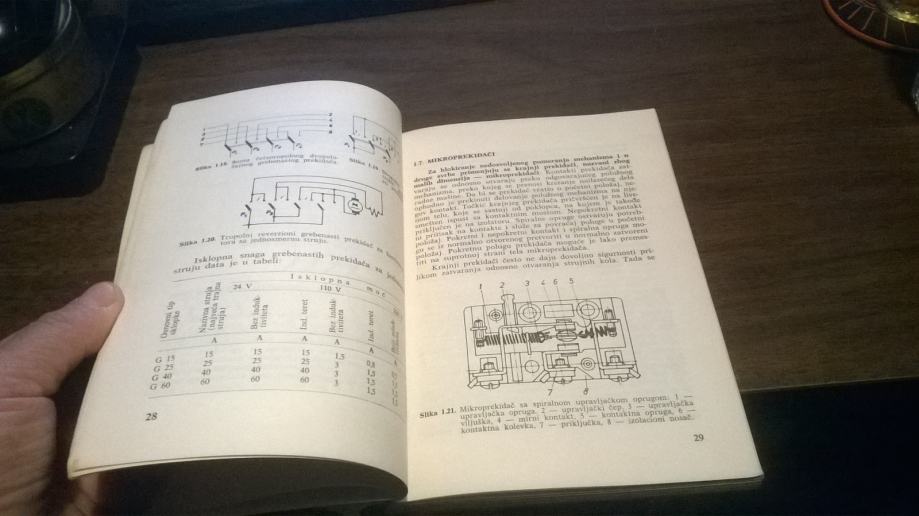 Slika 1.18. Šema četvoropolnog dvopolo-
žajnog grebenastog prekidača.
Slika 1.19
Slika 1.20. Tropolni reverzioni grebenasti prekidač za
tora sa jednosmernu struju.
Isklopna snaga grebenastih prekidača za
struju data je u tabeli:
Isklopna moć
24 V 110 V
Osnovni tip sklopke
Nazivna struja (najveća trajna struja)
Bez induktiviteta
Ind. teret
Bez induktiviteta
Ind. teret
A A A A A A
G 15 15 15 15 1,5 0,8
G 25 25 25 25 3 1,5
G 40 40 40 40 3 1,5
G 60 60 60 60 3 1,5
28
1.7. MIKROPREKIDAČI
Za blokiranje nedozvoljenog pomeranja mehanizma i u
druge svrhe primenjuju se krajnji prekidači, nazvani zbog
malih dimenzija — mikroprekidači. Kontakti prekidača zat-
varaju se odnosno otvaraju preko odgovarajućeg polužnog
mehanizma, preko kojeg se prenosi kretanje
radne mašine. Da bi se prekidač vratio u početni položaj, ne-
ophodno je prekinuti delovanje polužnog mehanizma na nje-
gov kontakt. Točkić krajnjeg prekidača pričvršćen je na live-
nom telu, koje se sastoji od poklopca, na kojem je takođe
smešten ispust sa kontaktnim mostom. Nepokretni kontakt
priključen je na Spiralne opruge ostvaruju potreb-
ni pritisak na kontakte i služe za povraćaj poluge u početni
položaj. Pokretni i nepokretni kontakt i spiralna opruga mo-
gu se iz normalno otvorenog pretvoriti u normalno zatvoreni
položaj. Pokretnu polugu prekidača moguće je lako premes-
titi na suprotnoj strani tela mikroprekidača.
Krajnji prekidači često ne daju dovoljno sigurnosti pri-
likom zatvaranja odnosno otvaranja strujnih kola. Tada se
1 2 3 4 6 5
7 8
Slika 1.21. Mikroprekidač sa spiralnom upravljačkom oprugom: 1 —
upravljačka opruga, 2 — upravljački čep, 3 — upravljačka
viljuška, 4 — mirni kontakt, 5 — kontaktna opruga, 6 —
kontaktna kolevka, 7 — priključka, 8 — izolacioni nosač.
29